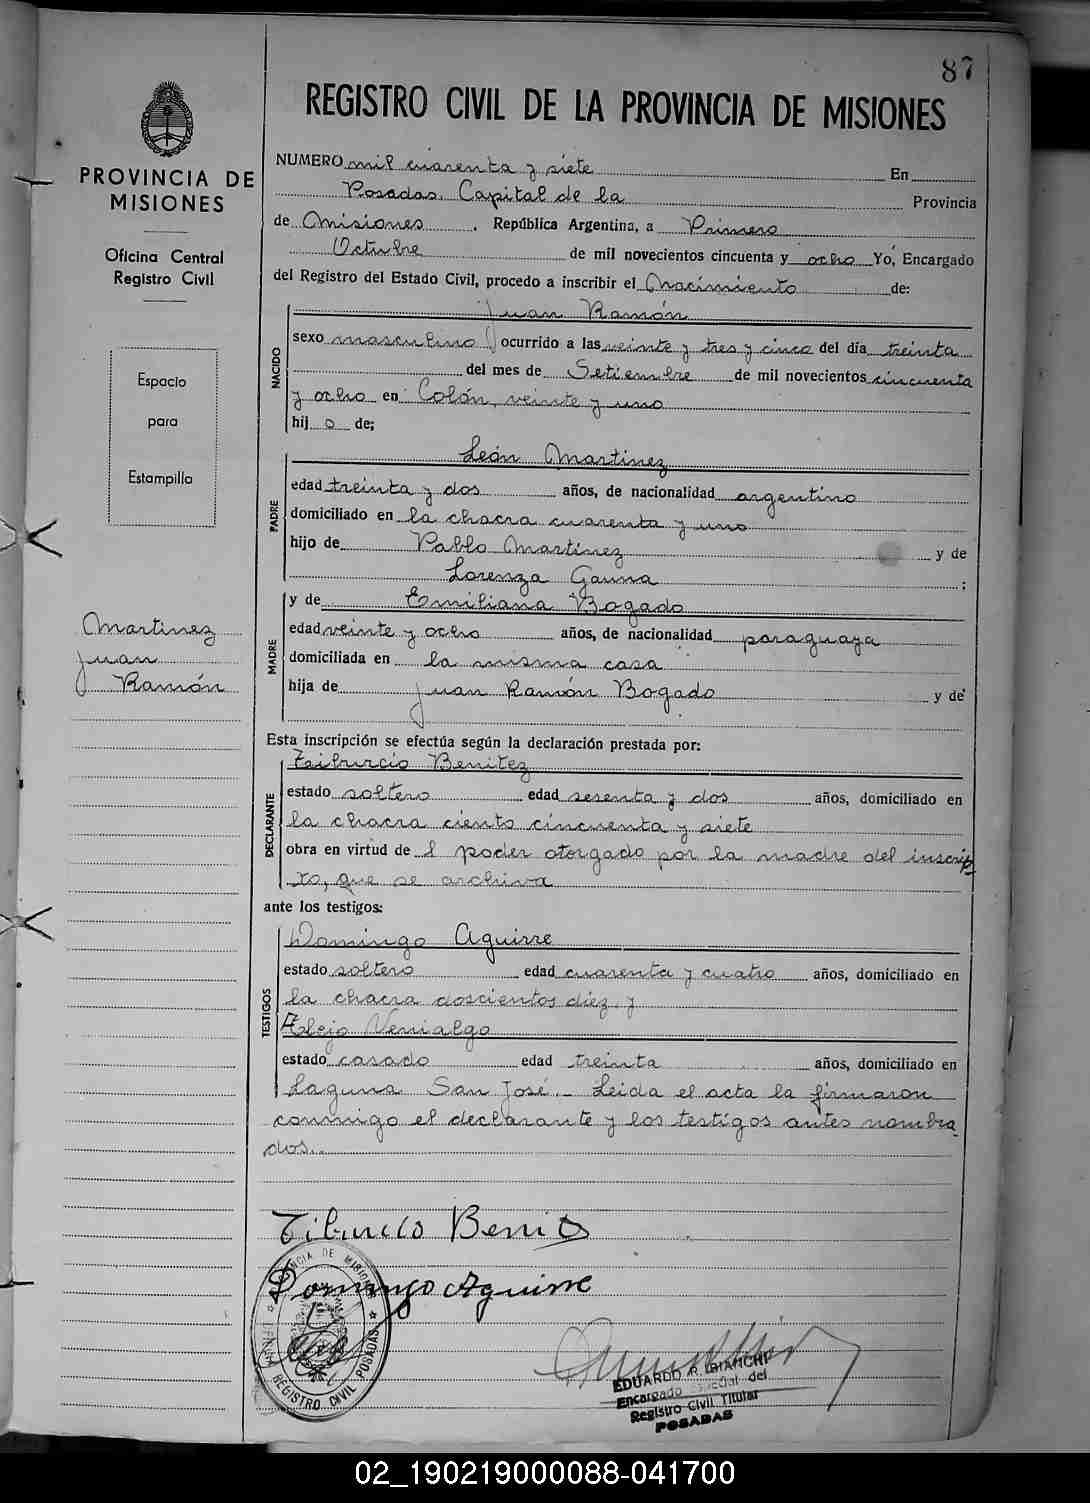 87
REGISTRO CIVIL DE LA PROVINCIA DE MISIONES
PROVINCIA DE
MISIONES
Oficina Central
Registro Civil
Espacio
para
Estampilla
Martinez
Juan
Ramón
NUMERO mil cuarenta y siete En
Posadas, Capital de la Provincia
de Misiones, República Argentina, a Primero
Octubre de mil novecientos cincuenta y ocho Yó, Encargado
del Registro del Estado Civil, procedo a inscribir el Nacimiento de:
NACIDO
Juan Ramón
sexo masculino ocurrido a las veinte y tres y cinco del día treinta
del mes de Setiembre de mil novecientos cincuenta
y ocho en Colón, veinte y uno
hij o de;
PADRE
León Martinez
edad treinta y dos años, de nacionalidad argentino
domiciliado en la chacra cuarenta y uno
hijo de Pablo Martínez y de
Lorenza Gauna ;
MADRE
y de Emiliana Bogado
edad veinte y ocho años, de nacionalidad paraguaya
domiciliada en la misma casa
hija de Juan Ramón Bogado y de
Esta inscripción se efectúa según la declaración prestada por:
DECLARANTE
Tiburcio Benitez
estado soltero edad sesenta y dos años, domiciliado en
la chacra ciento cincuenta y siete
obra en virtud de l poder otorgado por la madre del inscrip
to, que se archiva
ante los testigos:
TESTIGOS
Domingo Aguirre
estado soltero edad cuarenta y cuatro años, domiciliado en
la chacra doscientos diez y
Alejo Venialgo
estado casado edad treinta años, domiciliado en
Laguna San José.- Leida el acta la firmaron
conmigo el declarante y los testigos antes nombra
dos..
Tiburcio Benites
Domingo Aguirre
PROVINCIA DE MISIONES
REGISTRO CIVIL POSADAS
EDUARDO R. BIANCHI
Encargado Special del
Registro Civil Titular
POSADAS
02_190219000088-041700